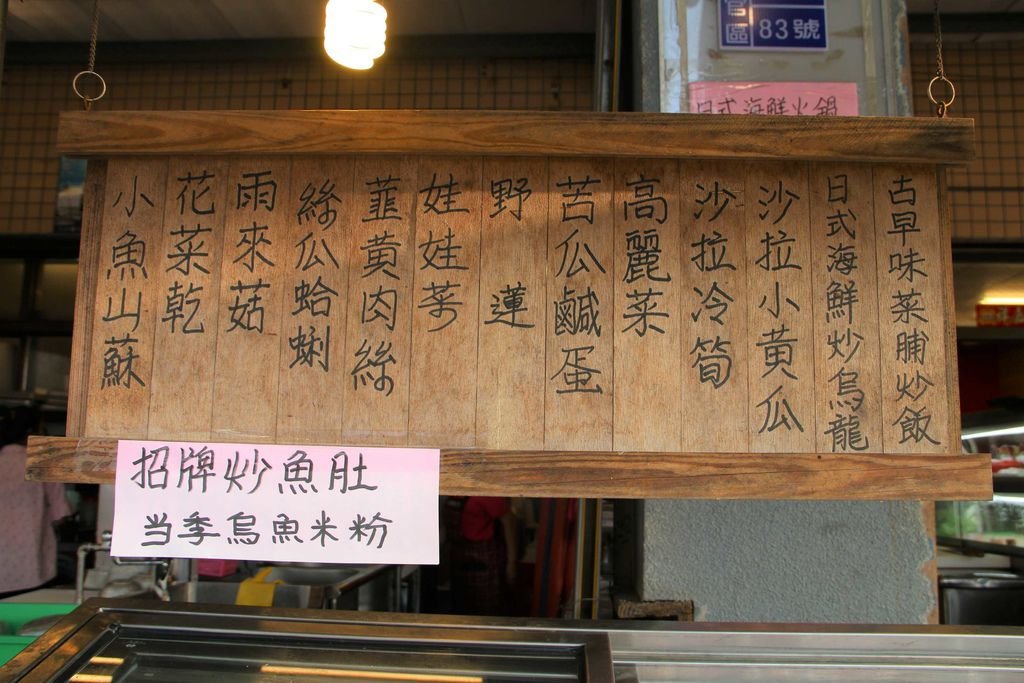 官區 83號
日式海鮮火鍋
古早味菜脯炒飯
日式海鮮炒烏龍
沙拉小黃瓜
沙拉冷筍
高麗菜
苦瓜鹹蛋
野蓮
娃娃菜
韮黃肉絲
絲瓜蛤蜊
雨來菇
花菜乾
小魚山蘇
招牌炒魚肚
当季烏魚米粉